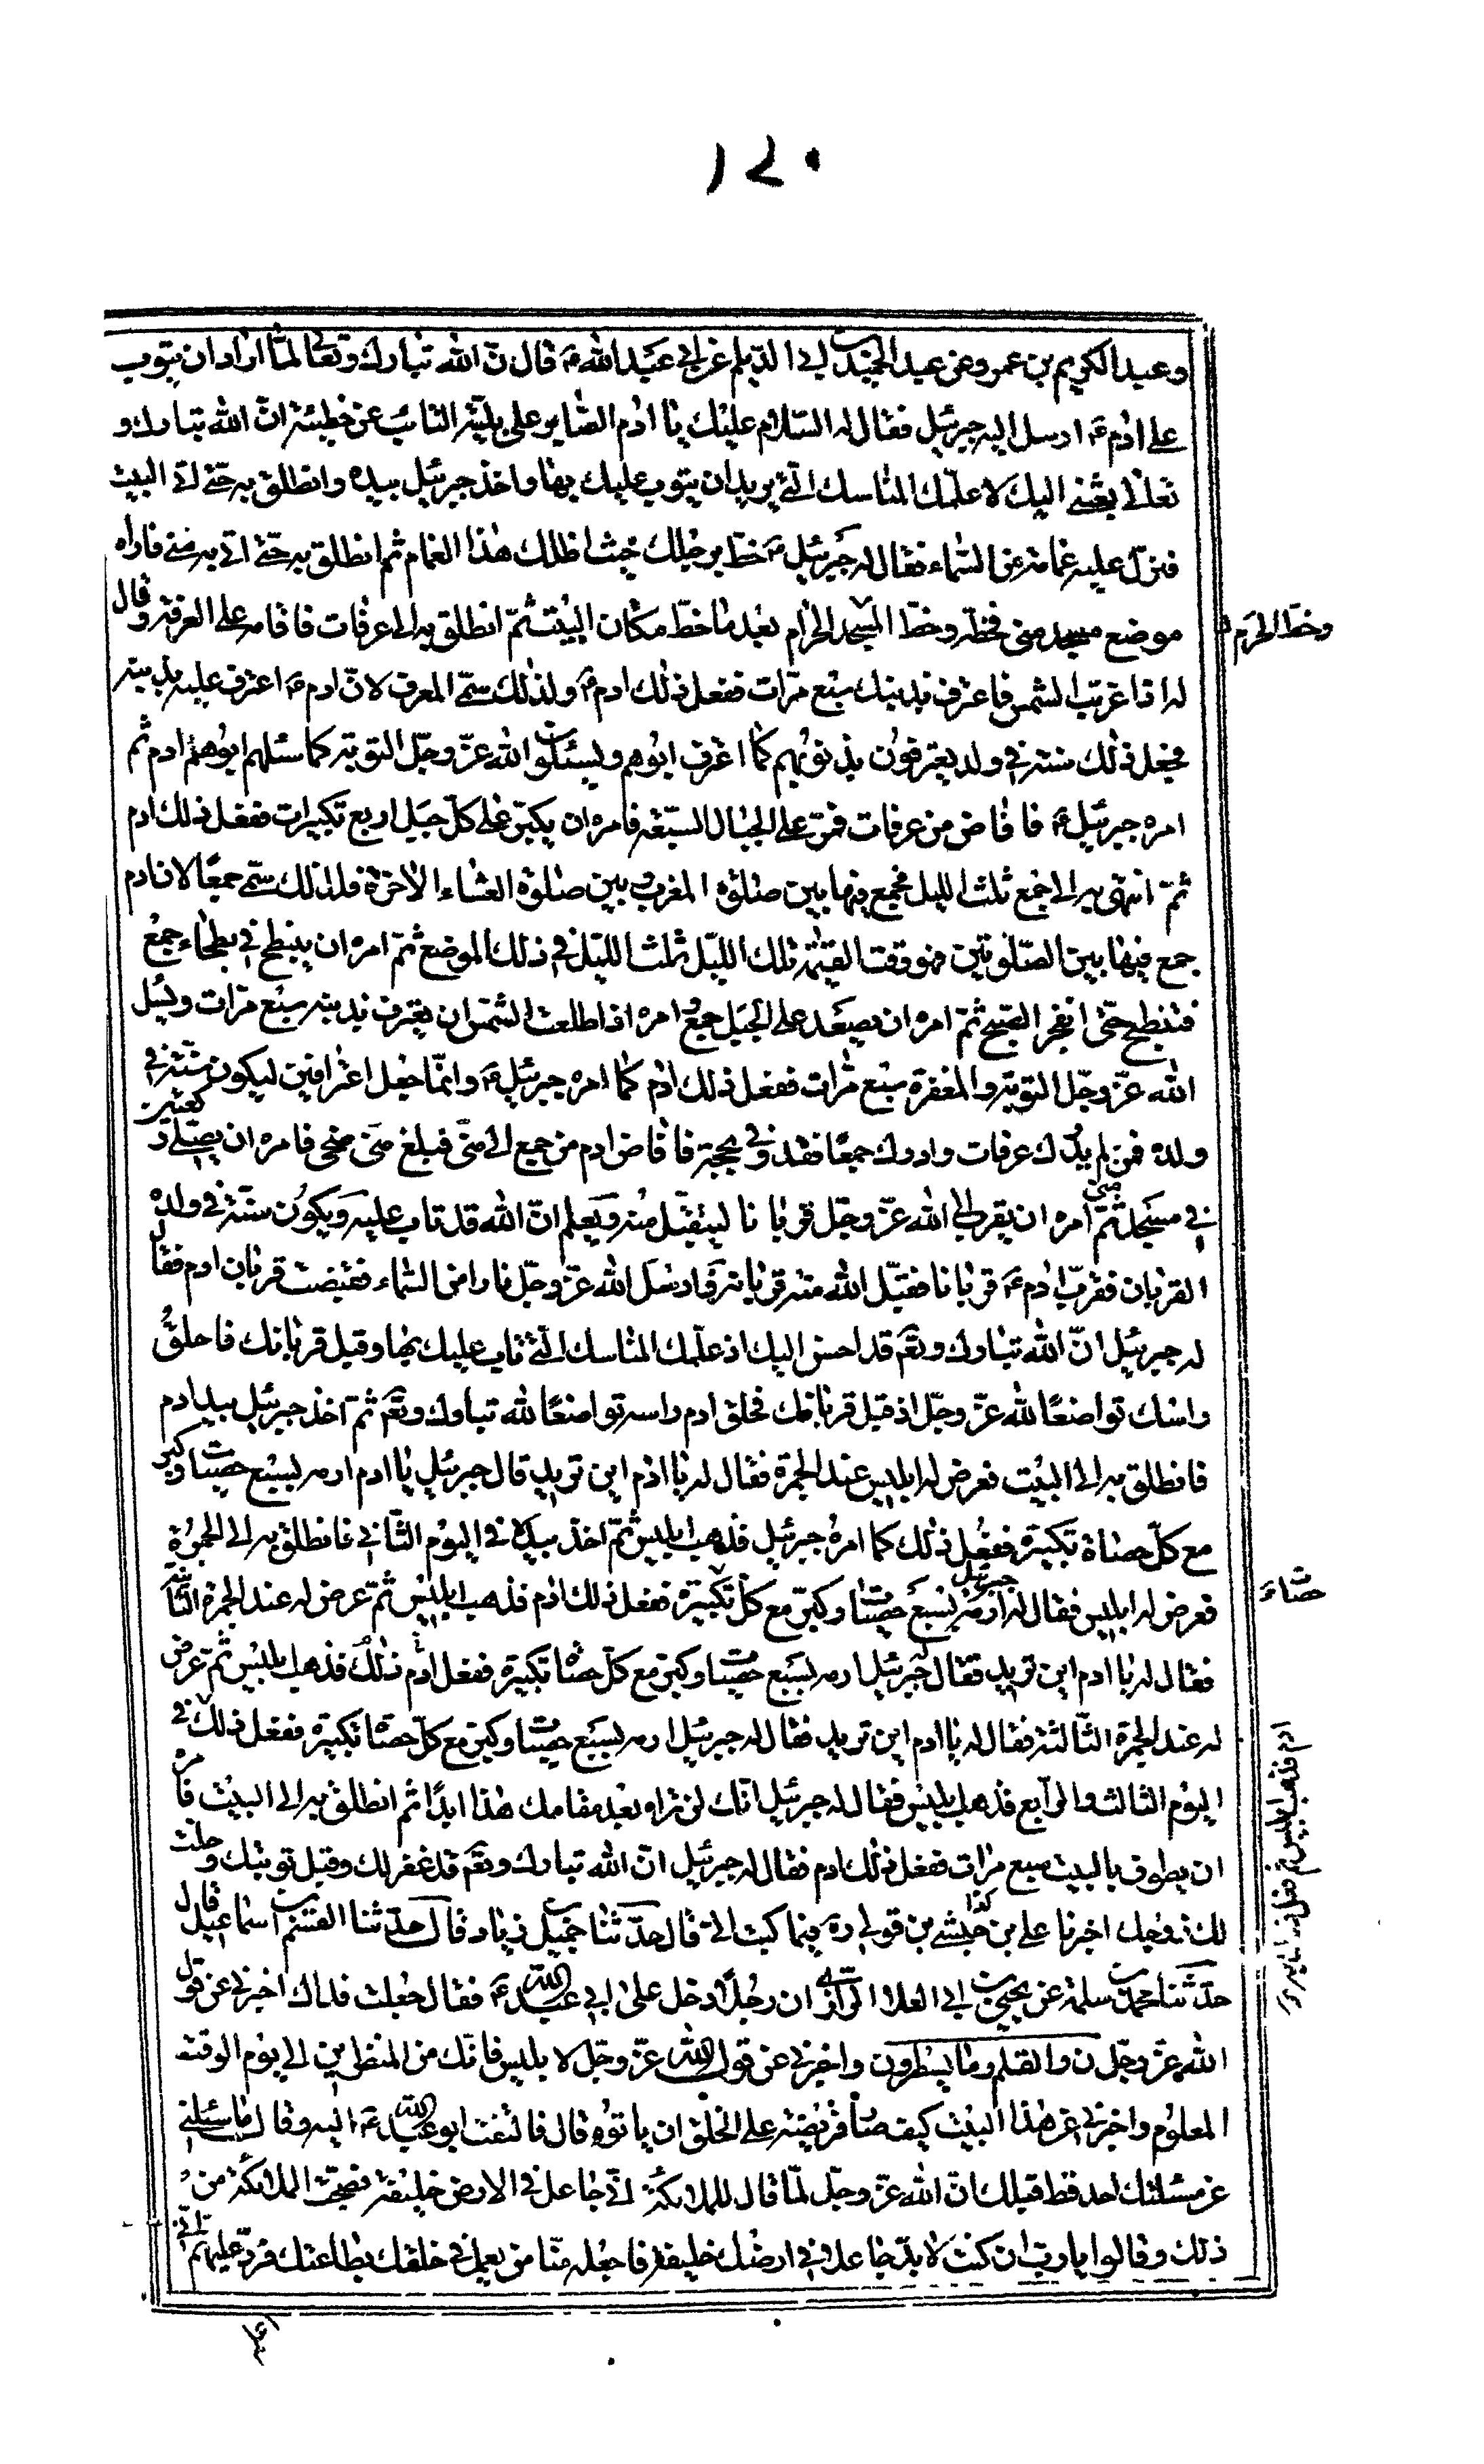 ١٤٠
وعبد الكريم بن عمرو عن عبد الحميد بن ابي الديلم عن ابي عبد الله ع قال ن الله تبارك وتعالى لما اراد ان يتوب
على ادم ع ارسل اليه جبرئيل فقال له السلام عليك يا ادم الصابر على بليته التائب عن خطيئته انّ الله تبارك و
تعالى بعثني اليك لاعلمك المناسك التي يريد ان يتوب عليك بها واخذ جبرئيل بيده وانطلق به حتى اتى البيت
فنزل عليه غمامة من السماء فقال له جبرئيل ع خط برجلك حيث اظلك هذا الغمام ثم انطلق به حتى اتى به منى فاراه
موضع مسجد منى فخطه وخط المسجد الحرام بعد ما خط مكان البيت ثمّ انطلق به الى عرفات فاقامه على العرفة وقال
وخط الحرم
له اذا غربت الشمس فاعترف بذنبك سبع مرّات ففعل ذلك ادم ع ولذلك سمّي المعرف لانّ ادم ع اعترف عليه بذنبه
فجعل ذلك سنة في ولده يعترفون بذنوبهم كما اعترف ابوهم ويسئلون الله عزّ وجلّ التوبة كما سئلهم ابوهم ادم ثم
امره جبرئيل ع فافاض من عرفات فمرّ على الجبال السبعة فامره ان يكبّر على كلّ جبل اربع تكبيرات ففعل ذلك ادم
ثمّ انتهى به الى جمع ثلث الليل فجمع فيها بين صلوة المغرب وبين صلوة العشاء الاخرة فلذلك سمّي جمعًا لان ادم
جمع فيها بين الصّلوتين فهو وقت العتمة تلك الليل ثلث الليل في ذلك الموضع ثمّ امره ان ينبطح في بطحاء جمع
فتنبطح حتى انفجر الصبح ثمّ امره ان يصعد على الجبل جمع وامره اذا طلعت الشمس ان يعترف بذنبه سبع مرّات ويسئل
الله عزّ وجلّ التوبة والمغفرة سبع مرّات ففعل ذلك ادم كما امره جبرئيل ع وانّما جعل اعترافين ليكون سنة في
ولده فمن لم يدرك عرفات وادرك جمعًا فقد وفى بحجه فافاض ادم من جمع الى منى فبلغ منى ضحى فامره ان يصلي ركعتين
في مسجد منى ثمّ امره ان يقرب الى الله عزّ وجلّ قربانا ليتقبل منه ويعلم انّ الله قد تاب عليه ويكون سنة في ولده
القربان فقرّب ادم ع قربانا فقبّل الله منه قربانه وارسل الله عزّ وجلّ نارا من السماء فقبضت قربان ادم فقال
له جبرئيل انّ الله تبارك وتعم قد احسن اليك اذ علمك المناسك التي تاب عليك بها وقبل قربانك فاحلق
راسك تواضعًا لله عزّ وجلّ اذ قبل قربانك فحلق ادم راسه تواضعًا لله تبارك وتعم ثمّ اخذ جبرئيل بيد ادم
فانطلق به الى البيت فعرض له ابليس عند الجمرة فقال له يا ادم اين تريد قال جبرئيل يا ادم ارمه بسبع حصيات وكبر
مع كلّ حصاة تكبيرة ففعل ذلك كما امره جبرئيل فذهب ابليس ثمّ اخذ بيده في اليوم الثاني فانطلق به الى الجمرة
فعرض له ابليس فقال له جبرئيل ارمه بسبع حصيات وكبّر مع كلّ تكبيرة ففعل ذلك ادم فذهب ابليس ثمّ عرض له عند الجمرة الثانية
حصاة
فقال له يا ادم اين تريد فقال له جبرئيل ارمه بسبع حصيات وكبر مع كلّ حصاة تكبيرة ففعل ادم ذلك فذهب ابليس ثمّ عرض
له عند الجمرة الثالثة فقال له يا ادم اين تريد فقال له جبرئيل ارمه بسبع حصيات وكبر مع كلّ حصاة تكبيرة ففعل ذلك في
ادم فذهب ابليس ثم فعل
اليوم الثالث والرابع فذهب ابليس فقال له جبرئيل انّك لن تراه بعد مقامك هذا ابدًا ثم انطلق به الى البيت فامره
ان يطوف بالبيت سبع مرات ففعل ذلك ادم فقال له جبرئيل انّ الله تبارك وتعم قد غفر لك وقبل توبتك وحلت
لك زوجك اخبرنا علي بن حبشي كذا بن قولي ره فيما كتب الي قال حدّثنا جميل بن زياد قال حدثنا القسم بن اسماعيل قال
حدّثنا محمد بن سلمة عن يحيى بن ابي العلا الرازي ان رجلا دخل على ابي عبد الله ع فقال جعلت فداك اخبرني عن قول
الله عزّ وجلّ ن والقلم وما يسطرون واخبرني عن قول الله عزّ وجلّ لابليس فانّك من المنظرين الى يوم الوقت
المعلوم واخبرني عن هذا البيت كيف صار فريضة على الخلق ان ياتوه قال فالتفت ابو عبد الله ع اليه وقال ما سئلني
عن مسئلتك احد قط قبلك انّ الله عزّ وجلّ لمّا قال للملائكة اني جاعل في الارض خليفة فضجّت الملائكة من
ذلك وقالوا يا رب ان كنت لا بدّ جاعلا في ارضك خليفة فاجعله منّا من يعمل في خلقك بطاعتك فردّ عليهم اني
اعلم